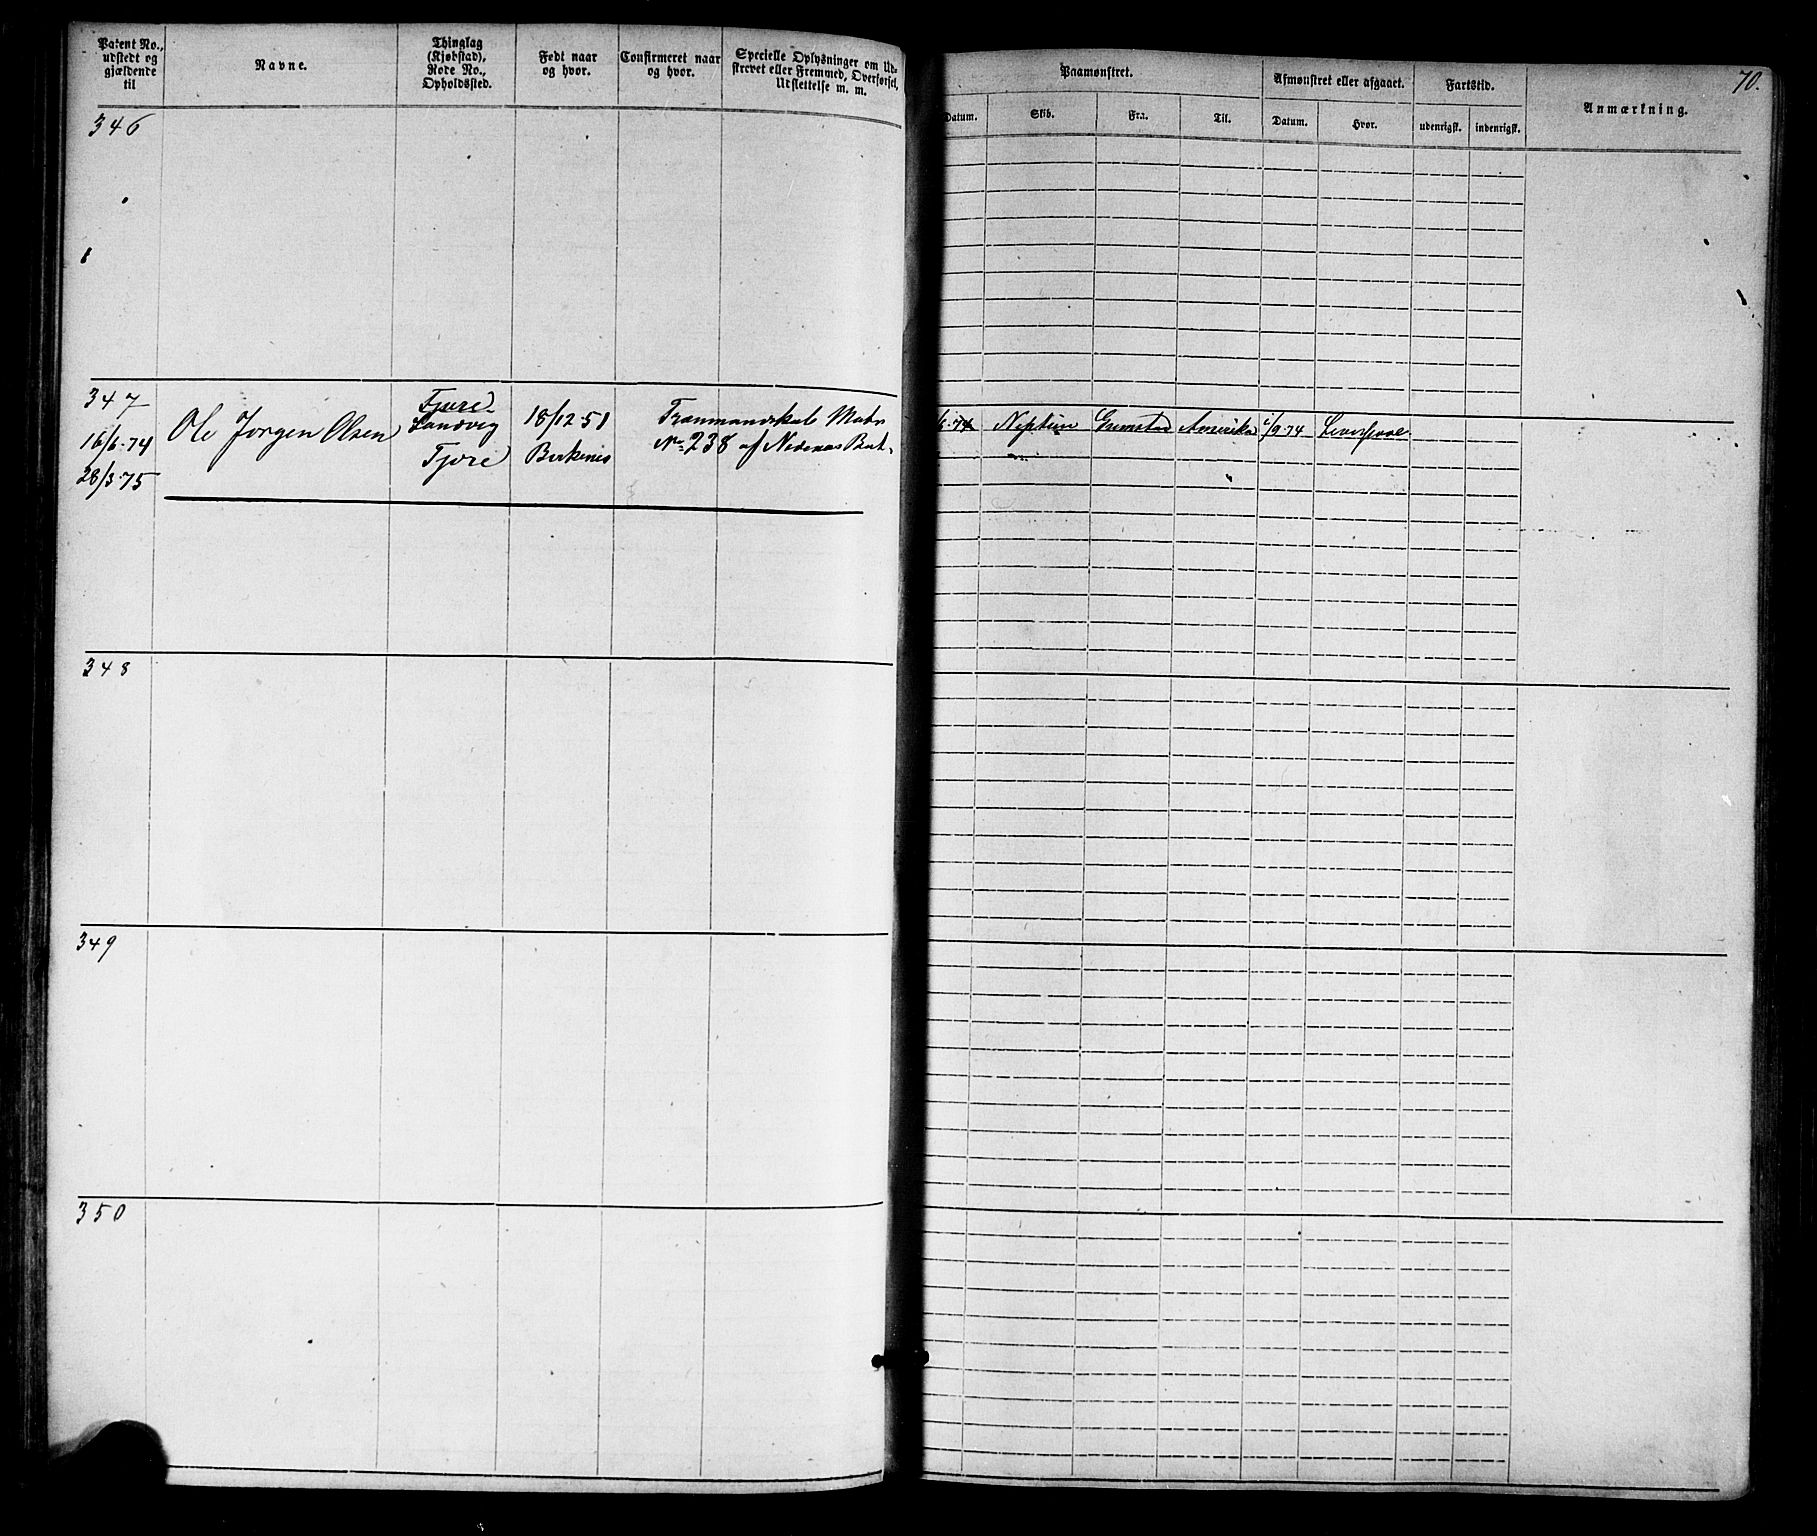 Patent No., udstedt og gjældende til
Navne.
Thinglag (Kjøbstad), Rode No., Opholdssted.
Født naar og hvor.
Confirmeret naar og hvor.
Specielle Oplysninger om Udskrevet eller Fremmed, Overførsel, Udslettelse m. m.
Paamønstret.
Afmønstret eller afgaaet.
Fartstid.
Anmærkning.
70.
Datum.
Skib.
Fra.
Til.
Datum.
Hvor.
udenrigsk.
indenrigsk.
346
347
16/6-74
28/3-75
Ole Jørgen Olsen
Fjære
Landvig
Fjære
18/12-51
Birkenes
Trænmandskab
No 238 af Nedenæs Bat.
6-74
Neptun
Grimstad
Amerika
/9-74
Liverpool
348
349
350